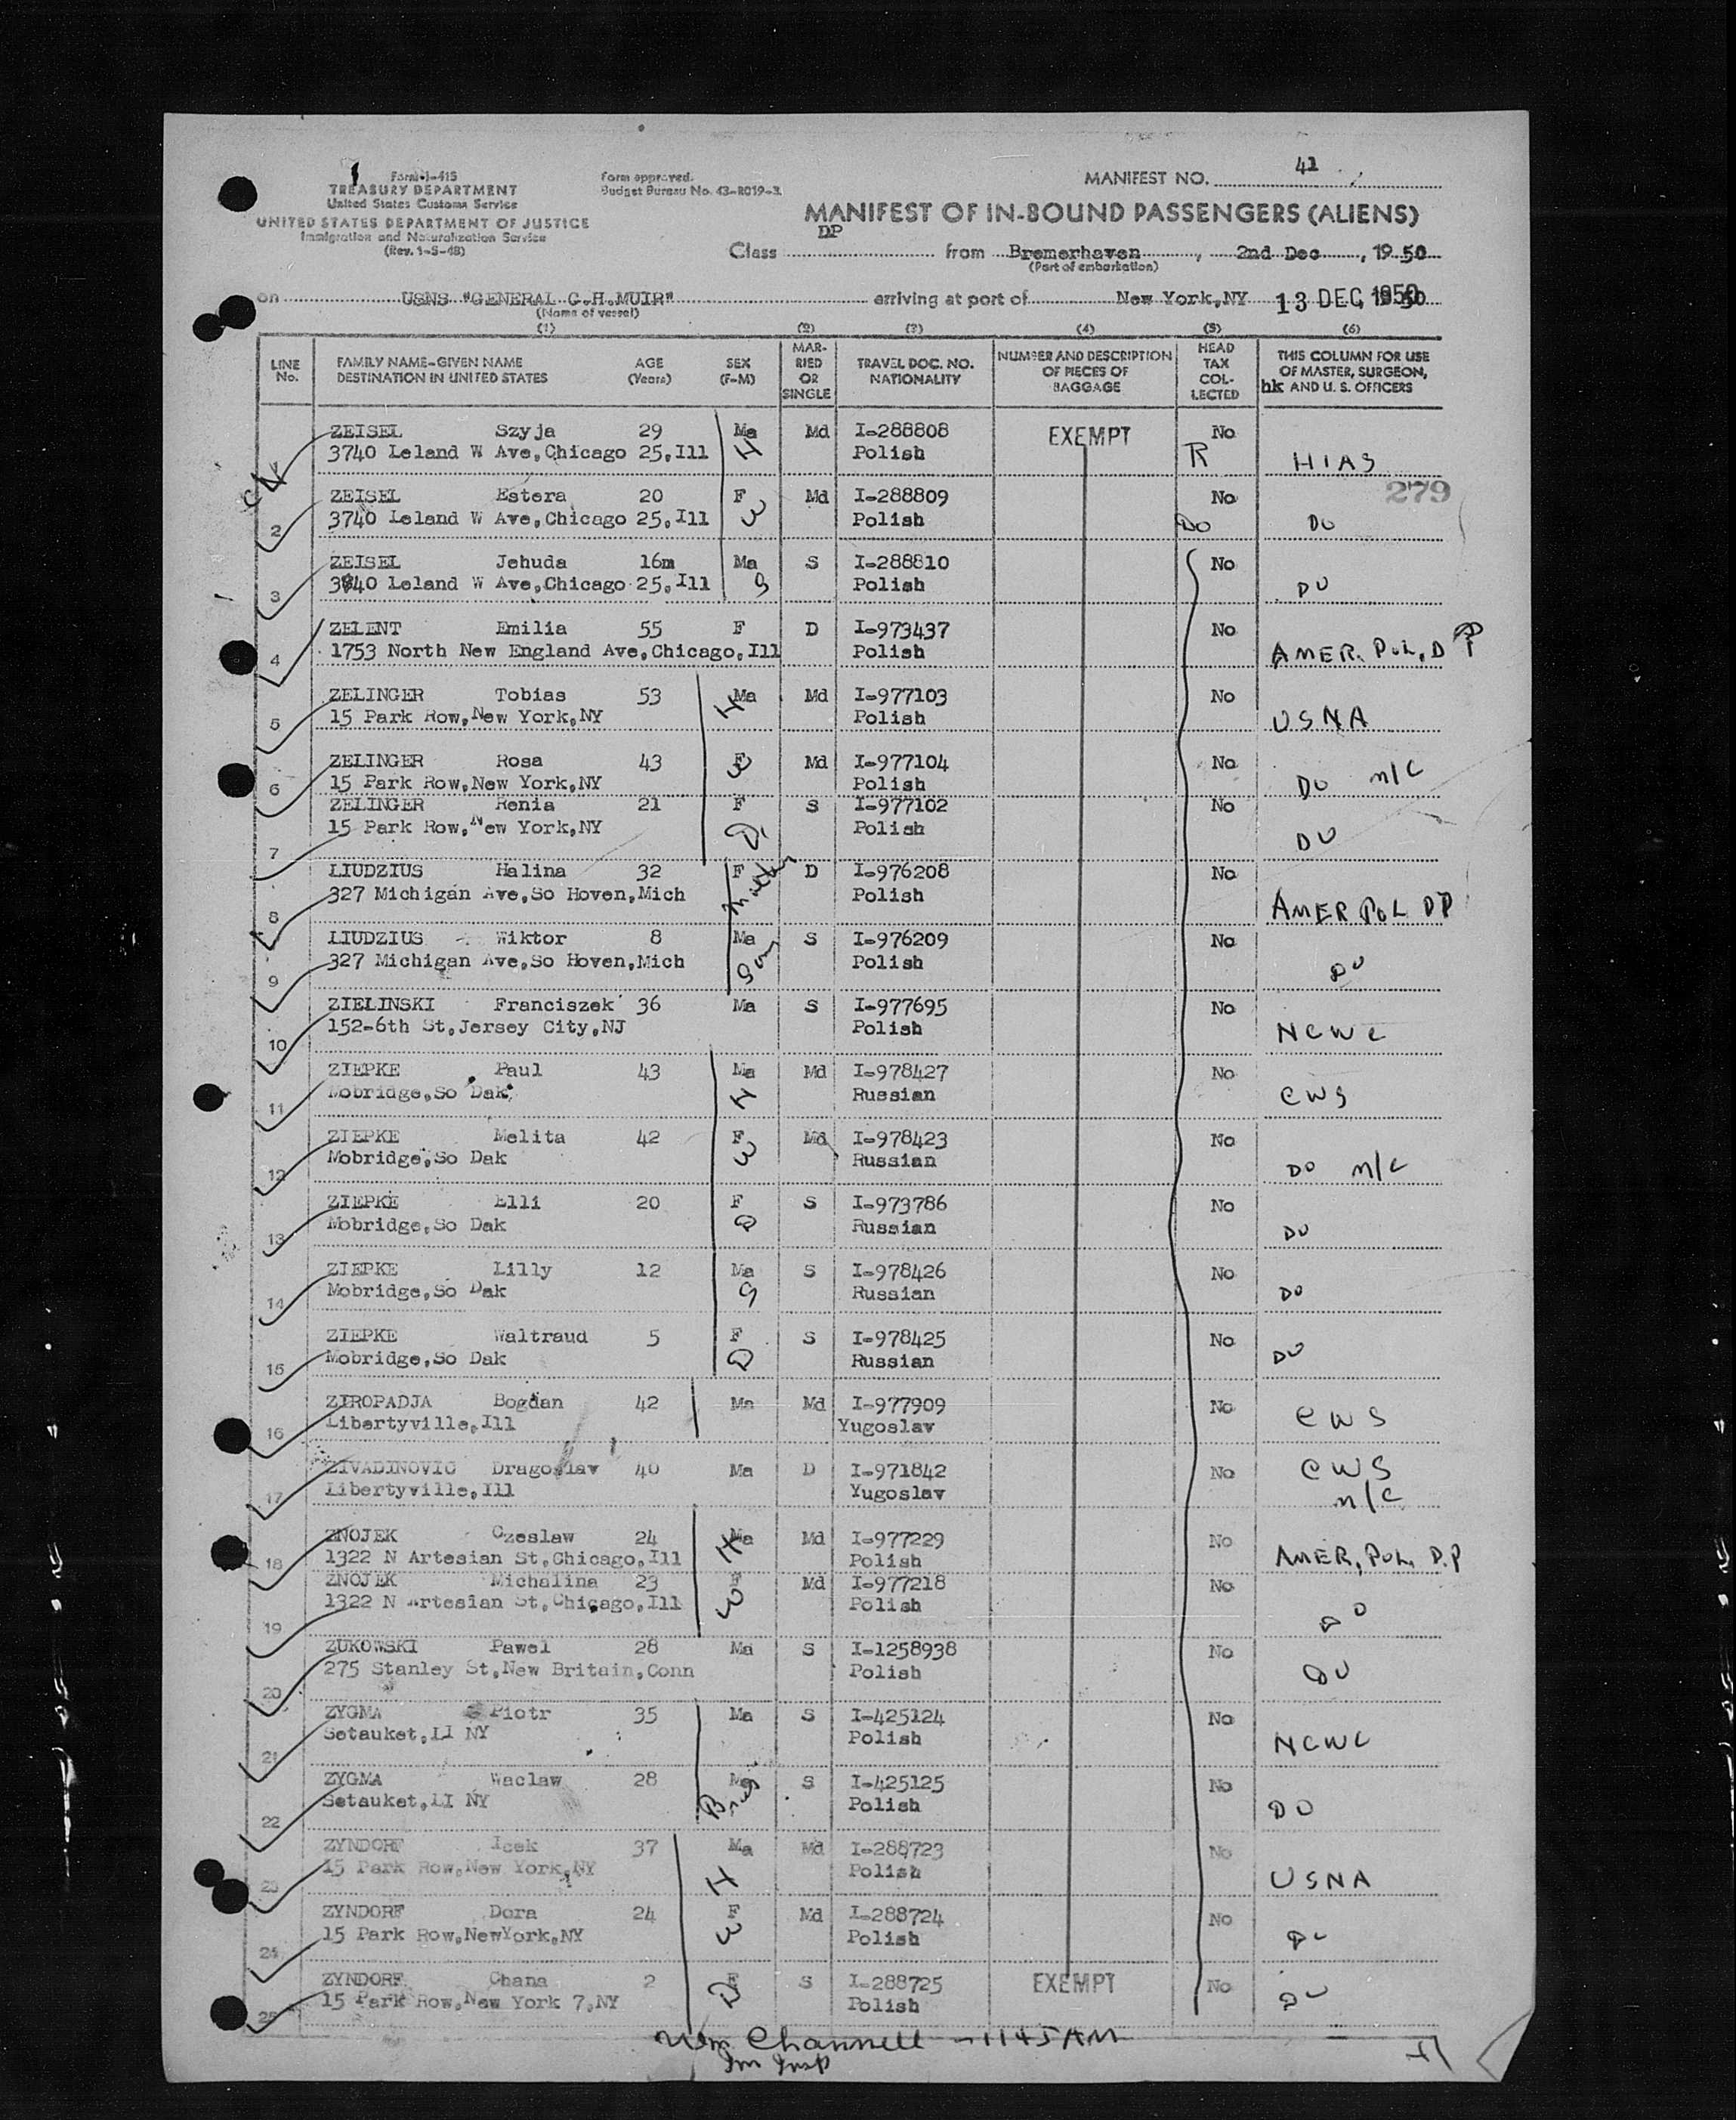 Form I-415
TREASURY DEPARTMENT
United States Customs Service
UNITED STATES DEPARTMENT OF JUSTICE
Immigration and Naturalization Service
(Rev. 1-5-48)
Form approved.
Budget Bureau No. 43-R019-3.
MANIFEST NO. 41
MANIFEST OF IN-BOUND PASSENGERS (ALIENS)
Class DP from Bremerhaven, 2nd Dec, 19 50
(Port of embarkation)
on USNS "GENERAL C.H.MUIR" arriving at port of New York,NY 13 DEC 1950
(Name of vessel)
(1) (2) (3) (4) (5) (6)
LINE No. FAMILY NAME-GIVEN NAME DESTINATION IN UNITED STATES AGE (Years) SEX (F-M) MARRIED OR SINGLE TRAVEL DOC. NO. NATIONALITY NUMBER AND DESCRIPTION OF PIECES OF BAGGAGE HEAD TAX COLLECTED THIS COLUMN FOR USE OF MASTER, SURGEON, hk AND U. S. OFFICERS
1 ZEISEL Szyja 29 Ma H Md I-288808 EXEMPT No
3740 Leland W Ave,Chicago 25,Ill Polish R HIAS
279
2 ZEISEL Estera 20 F W Md I-288809 No
3740 Leland W Ave,Chicago 25,Ill Polish Do Do
3 ZEISEL Jehuda 16m Ma S S I-288810 No
3740 Leland W Ave,Chicago 25,Ill Polish DO
4 ZELENT Emilia 55 F D I-973437 No
1753 North New England Ave,Chicago,Ill Polish AMER. POL. DP
5 ZELINGER Tobias 53 Ma H Md I-977103 No
15 Park Row,New York,NY Polish USNA
6 ZELINGER Rosa 43 F W Md I-977104 No
15 Park Row,New York,NY Polish DO n/c
7 ZELINGER Renia 21 F D S I-977102 No
15 Park Row,New York,NY Polish DO
8 LIUDZIUS Halina 32 F Mother D I-976208 No
327 Michigan Ave,So Hoven,Mich Polish AMER POL DP
9 LIUDZIUS Wiktor 8 Ma Son S I-976209 No
327 Michigan Ave,So Hoven,Mich Polish DO
10 ZIELINSKI Franciszek 36 Ma S I-977695 No
152-6th St,Jersey City,NJ Polish NCWC
11 ZIEPKE Paul 43 Ma H Md I-978427 No
Mobridge,So Dak Russian CWS
12 ZIEPKE Melita 42 F W Md I-978423 No
Mobridge,So Dak Russian DO n/c
13 ZIEPKE Elli 20 F D S I-973786 No
Mobridge,So Dak Russian DO
14 ZIEPKE Lilly 12 Ma S S I-978426 No
Mobridge,So Dak Russian DO
15 ZIEPKE Waltraud 5 F D S I-978425 No
Mobridge,So Dak Russian DO
16 ZIROPADJA Bogdan 42 Ma Md I-977909 No
Libertyville,Ill Yugoslav CWS
17 ZIVADINOVIC Dragoslav 40 Ma D I-971842 No CWS
Libertyville,Ill Yugoslav n/c
18 ZNOJEK Czeslaw 24 Ma H Md I-977229 No
1322 N Artesian St,Chicago,Ill Polish AMER, POL, D.P
19 ZNOJEK Michalina 23 F W Md I-977218 No
1322 N Artesian St,Chicago,Ill Polish DO
20 ZUKOWSKI Pawel 28 Ma S I-1258938 No
275 Stanley St,New Britain,Conn Polish DO
21 ZYGMA Piotr 35 Ma S I-425124 No
Setauket,LI NY Polish NCWC
22 ZYGMA Waclaw 28 Ma S I-425125 No
Setauket,LI NY Polish DO
23 ZYNDORF Icek 37 Ma H Md I-288723 No
15 Park Row,New York,NY Polish USNA
24 ZYNDORF Dora 24 F W Md I-288724 No
15 Park Row,NewYork,NY Polish DO
25 ZYNDORF Chana 2 F D S I-288725 EXEMPT No
15 Park Row,New York 7,NY Polish DO
Wm Channell - 1145 AM
Im Insp